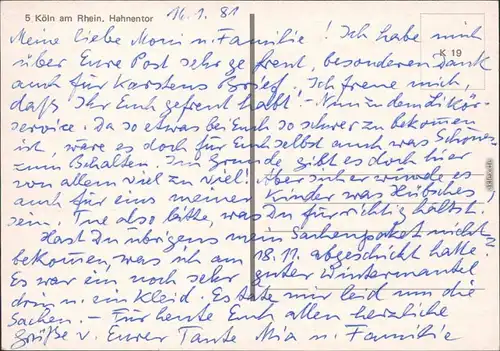 5 Köln am Rhein. Hahnentor
16.1.81
K 19
Meine liebe Moni u. Familie! Ich habe mich
über Eure Post sehr gefreut, besonderen Dank
auch für Karstens Brief. Ich freue mich,
daß Ihr Euch gefreut habt. - Nun zu dem Likör-
service. Da so etwas bei Euch so schwer zu bekommen
ist, wäre es doch für Euch selbst auch was Schönes
zum Behalten. Im Grunde gibt es doch hier
von allem viel zu viel! Aber sicher würde es
auch für eins meiner Kinder was Hübsches
sein. Tue also bitte, was Du für richtig hältst!
Hast Du übrigens mein Sachenpaket nicht
bekommen, was ich am 18.11. abgeschickt hatte.
Es war ein noch sehr guter Wintermantel
drin u. ein Kleid. Es täte mir leid um die
Sachen. - Für heute Euch allen herzliche
Grüße v. Eurer Tante Mia u. Familie